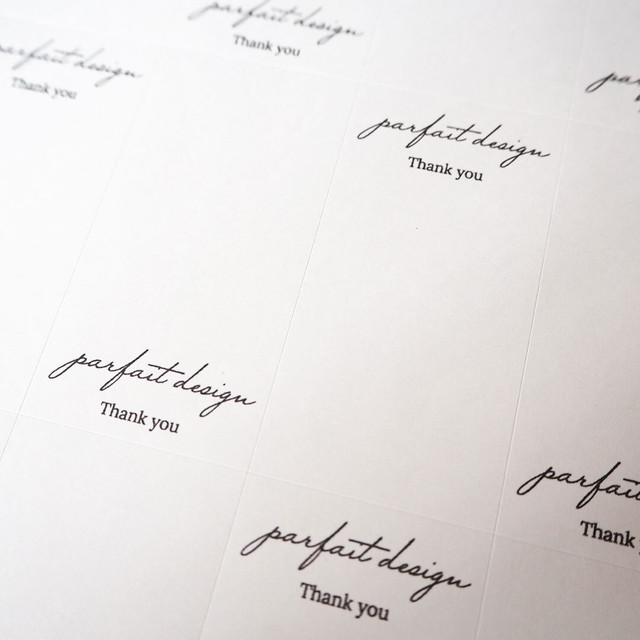 parfait design
Thank you
parfait design
Thank you
parfait design
Thank you
parfait design
Thank you
parfait design
Thank you
parfai
Thank